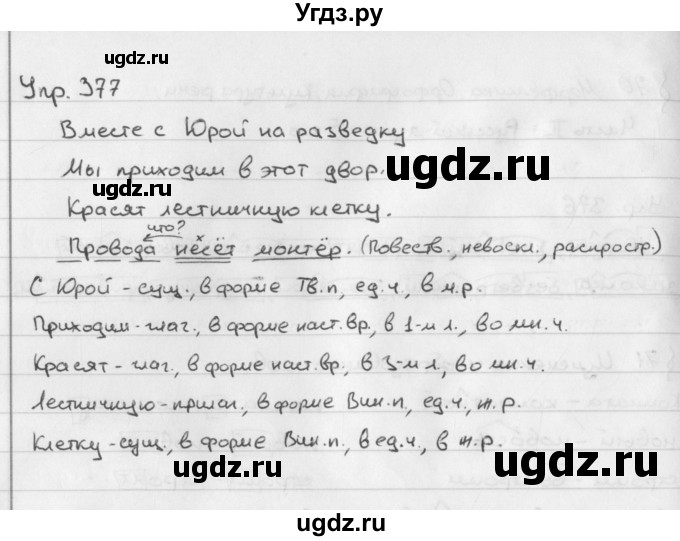 Угдз.ру
ugdz.ru
ugdz.ru
Упр. 377
Вместе с Юрой на разведку
Мы приходим в этот двор.
ugdz.ru
Красят лестничную клетку.
что?
Провода несёт монтёр. (Повеств., невоскл., распростр.)
С Юрой - сущ., в форме Тв.п, ед.ч., в м.р.
ugdz.ru
Приходим - глаг., в форме наст.вр, в 1-м л., во мн.ч.
Красят - глаг., в форме наст.вр, в 3-м л, во мн.ч.
ugdz.ru
ugdz.ru
Лестничную - прил., в форме Вин.п, ед.ч., ж.р.
Клетку - сущ., в форме Вин.п, в ед.ч., в ж.р.
ugdz.ru
ugdz.ru
ugdz.ru